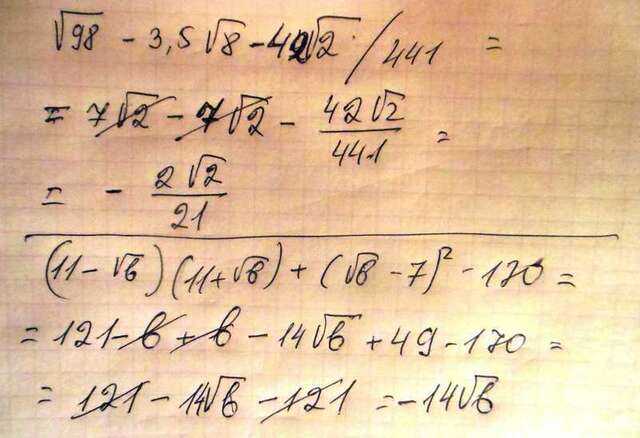 √98 - 3,5√8 - 42√2 / 441 =
= 7√2 - 7√2 - 42√2/441 =
= - 2√2/21
(11 - √b)(11 + √b) + (√b - 7)² - 170 =
= 121 - b + b - 14√b + 49 - 170 =
= 121 - 14√b - 121 = -14√b